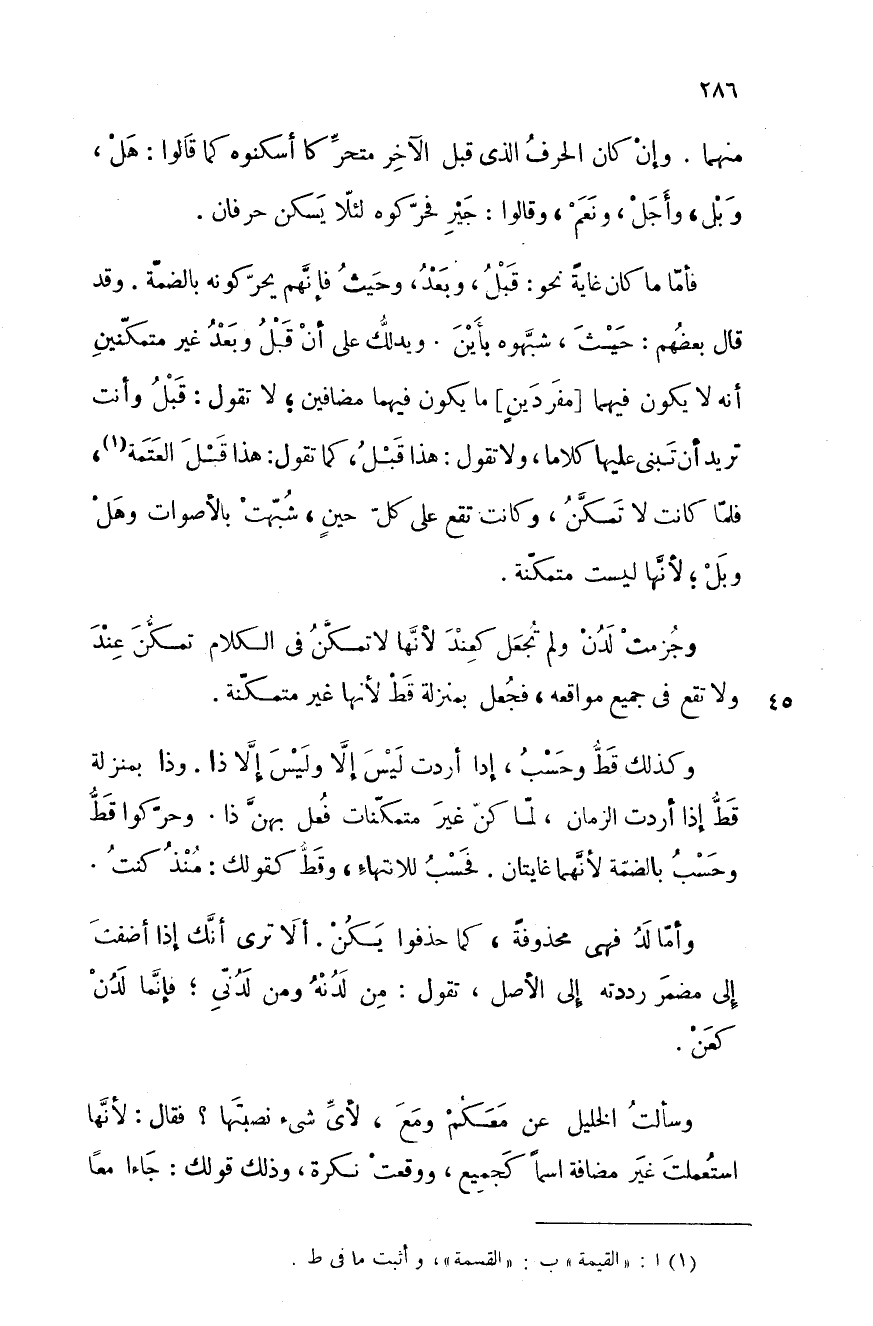 ٢٨٦
منهما . وإنْ كان الحرفُ الذى قبل الآخِر متحرِّكا أسكنوه كما قالوا : هَلْ ،
وَبْل، وأَجَلْ، ونَعَمْ، وقالوا : جَيْرِ فحرّكوه لئلّا يَسكن حرفان .
فأمّا ما كان غايةً نحو: قَبْلُ، وبَعْدُ، وحَيثُ فإنَّهم يحرّكونه بالضمّة . وقد
قال بعضُهم : حَيْثَ ، شبَّهوه بأَيْنَ . ويدلُّك على أنْ قَبْلُ وبَعْدُ غير متمكّنينِ
أنه لا يكون فيهما [مفرَدَينِ] ما يكون فيهما مضافين ؛ لا تقول : قَبْلُ وأنت
تريد أن تَبنى عليها كلاما، ولا تقول : هذا قَبْلُ، كما تقول: هذا قَبْلَ العَتَمة(١)،
فلمّا كانت لا تَمكَّنُ ، وكانت تقع على كلّ حينٍ، شُبّهتْ بالأصوات وهَلْ
وبَلْ؛ لأنَّها ليست متمكّنة .
وجُزمتْ لَدُنْ ولم تُجعَل كعِنْدَ لأنَّها لا تمكَّنُ فى الكلام تمكُّنَ عِنْدَ
ولا تقع فى جميع مواقعه، فجُعل بمنزلة قَطْ لأنها غير متمكّنة .
٤٥
وكذلك قَطُّ وحَسْبُ ، إدا أردت لَيْسَ إلَّا ولَيْسَ إلَّا ذا . وذا بمنزلة
قَطُّ إذا أردت الزمان ، لمّا كنّ غيرَ متمكّنات فُعل بهنَّ ذا . وحرّكوا قَطُّ
وحَسْبُ بالضمّة لأنَّهما غايتان . فحَسْبُ للانتهاءِ، وقَطُّ كقولك : مُنْذُ كنتُ .
وأمّا لَدُ فهى محذوفةٌ ، كما حذفوا يَكُنْ . ألَا ترى أنَّك إذا أضفتَ
إلى مضمَر رددته إلى الأصل ، تقول : مِن لَدُنْهُ ومن لَدُنّى ؛ فإنَّما لَدُنْ
كعَنْ .
وسألتُ الخليل عن مَعَكمْ ومَعَ ، لأىِّ شىء نصبتَها ؟ فقال : لأنَّها
استُعملتْ غيَر مضافة اسماً كَجميعٍ ، ووقعتْ نكرة ، وذلك قولك : جَاءا معًا
(١) ا : «القيمة» ب : «القسمة»، و أثبت ما فى ط .